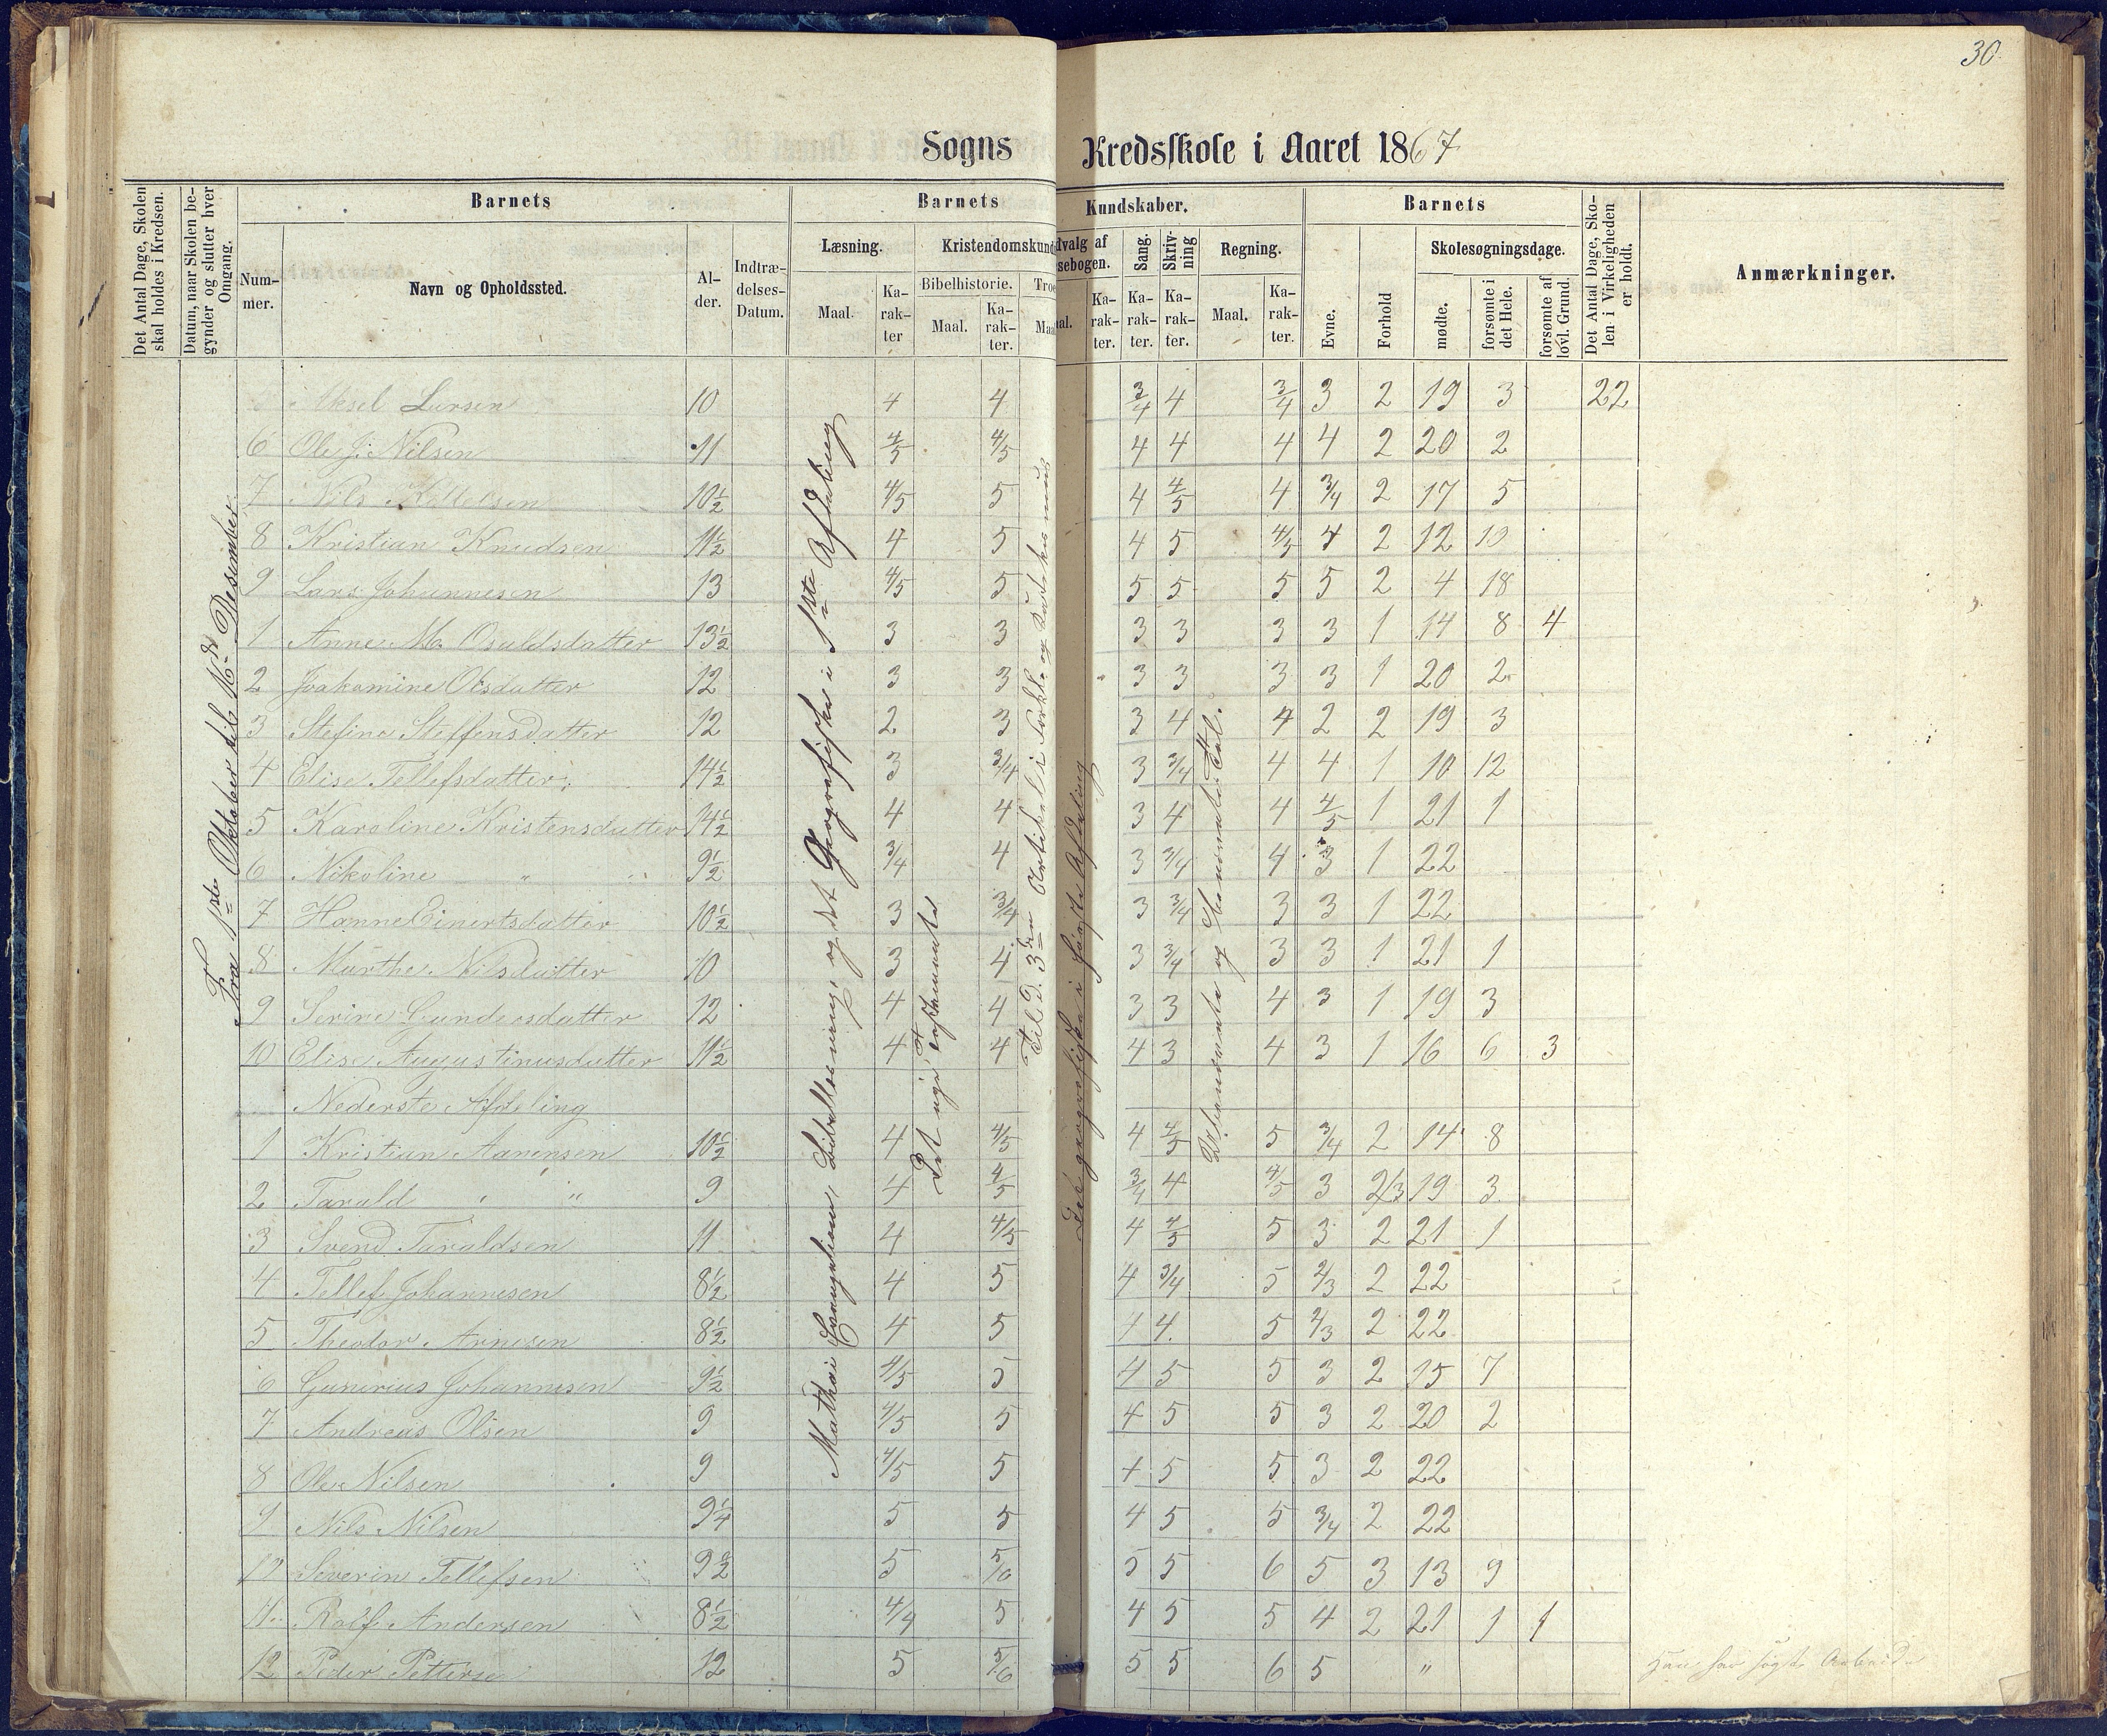 30
Sogns Kredsskole i Aaret 1867
Det Antal Dage, Skolen skal holdes i Kredsen.
Datum, naar Skolen begynder og slutter hver Omgang.
Barnets
Nummer.
Navn og Opholdssted.
Alder.
Indtrædelses-Datum.
Barnets Kundskaber.
Læsning.
Maal.
Karakter
Kristendomskund
Bibelhistorie.
Maal.
Karakter.
Troe
Maal
dvalg af
sebogen.
al.
Karakter.
Sang.
Karakter.
Skrivning
Karakter.
Regning.
Maal.
Karakter.
Barnets
Evne.
Forhold
Skolesøgningsdage.
mødte.
forsømte i det Hele.
forsømte af lovl. Grund.
Det Antal Dage, Skolen i Virkeligheden er holdt.
Anmærkninger.
Fra 1ste Oktober til 16de Desember
Mathæi Evangelium, Bibellæsning, og det Geografiske i 1ste Afdeling
Det nye Testamente
Til D. 3den Artikel i Forkl. og Katekismus
Det geografiske i første Afdeling
Aksel Larsen 10 4 4 3/4 4 3/4 3 2 19 3 22
6 Ole J. Nilsen 11 4/5 4/5 4 4 4 4 2 20 2
7 Nils 10½ 4/5 5 4 4/5 4 3/4 2 17 5
8 Kristian Knudsen 11½ 4 5 4 5 4/5 4 2 12 10
9 Lars Johannesen 13 4/5 5 5 5 5 5 2 4 18
1 Anne M. Osuldsdatter 13½ 3 3 3 3 3 3 1 14 8 4
2 Joakamine Olsdatter 12 3 3 3 3 3 3 1 20 2
3 Stefine Steffensdatter 12 2 3 3 4 4 2 2 19 3
4 Elise Tellefsdatter 14½ 3 3/4 3 3/4 4 4 1 10 12
5 Karoline Kristensdatter 14½ 4 4 3 4 4 4/5 1 21 1
6 Nikoline " 9½ 3/4 4 3 3/4 4 3 1 22
7 Hanne Einertsdatter 10½ 3 3/4 3 3/4 3 3 1 22
8 Marthe Nilsdatter 10 3 4 3 3/4 3 3 1 21 1
9 Serine Gundersdatter 12 4 4 3 3 4 3 1 19 3
10 Elise Augustinusdatter 11½ 4 4 4 3 4 3 1 16 6 3
Nederste Afdeling
1 Kristian Aanensen 10½ 4 4/5 4 4/5 5 3/4 2 14 8
2 Tarald " 9 4 4/5 3/4 4 4/5 3 2/3 19 3
3 Svend Taraldsen 11 4 4/5 4 4/5 5 3 2 21 1
4 Tellef Johannesen 8½ 4 5 4 3/4 5 2/3 2 22
5 Theodor Arnesen 8½ 4 5 4 4 5 2/3 2 22
6 Gunerius Johannesen 9½ 4/5 5 4 5 5 3 2 15 7
7 Andreas Olsen 9 4/5 5 4 5 5 3 2 20 2
8 Ole Nilsen 9 4/5 5 4 5 5 3 2 22
9 Nils Nilsen 9¼ 5 5 4 5 5 3/4 2 22
10 Severin Tellefsen 9½ 5 5/6 5 5 6 5 3 13 9
11 Rolf Andersen 8½ 4/4 5 4 5 5 4 2 21 1 1
12 Peder Petterse 12 5 5/6 5 5 6 5 "
Han har søgt